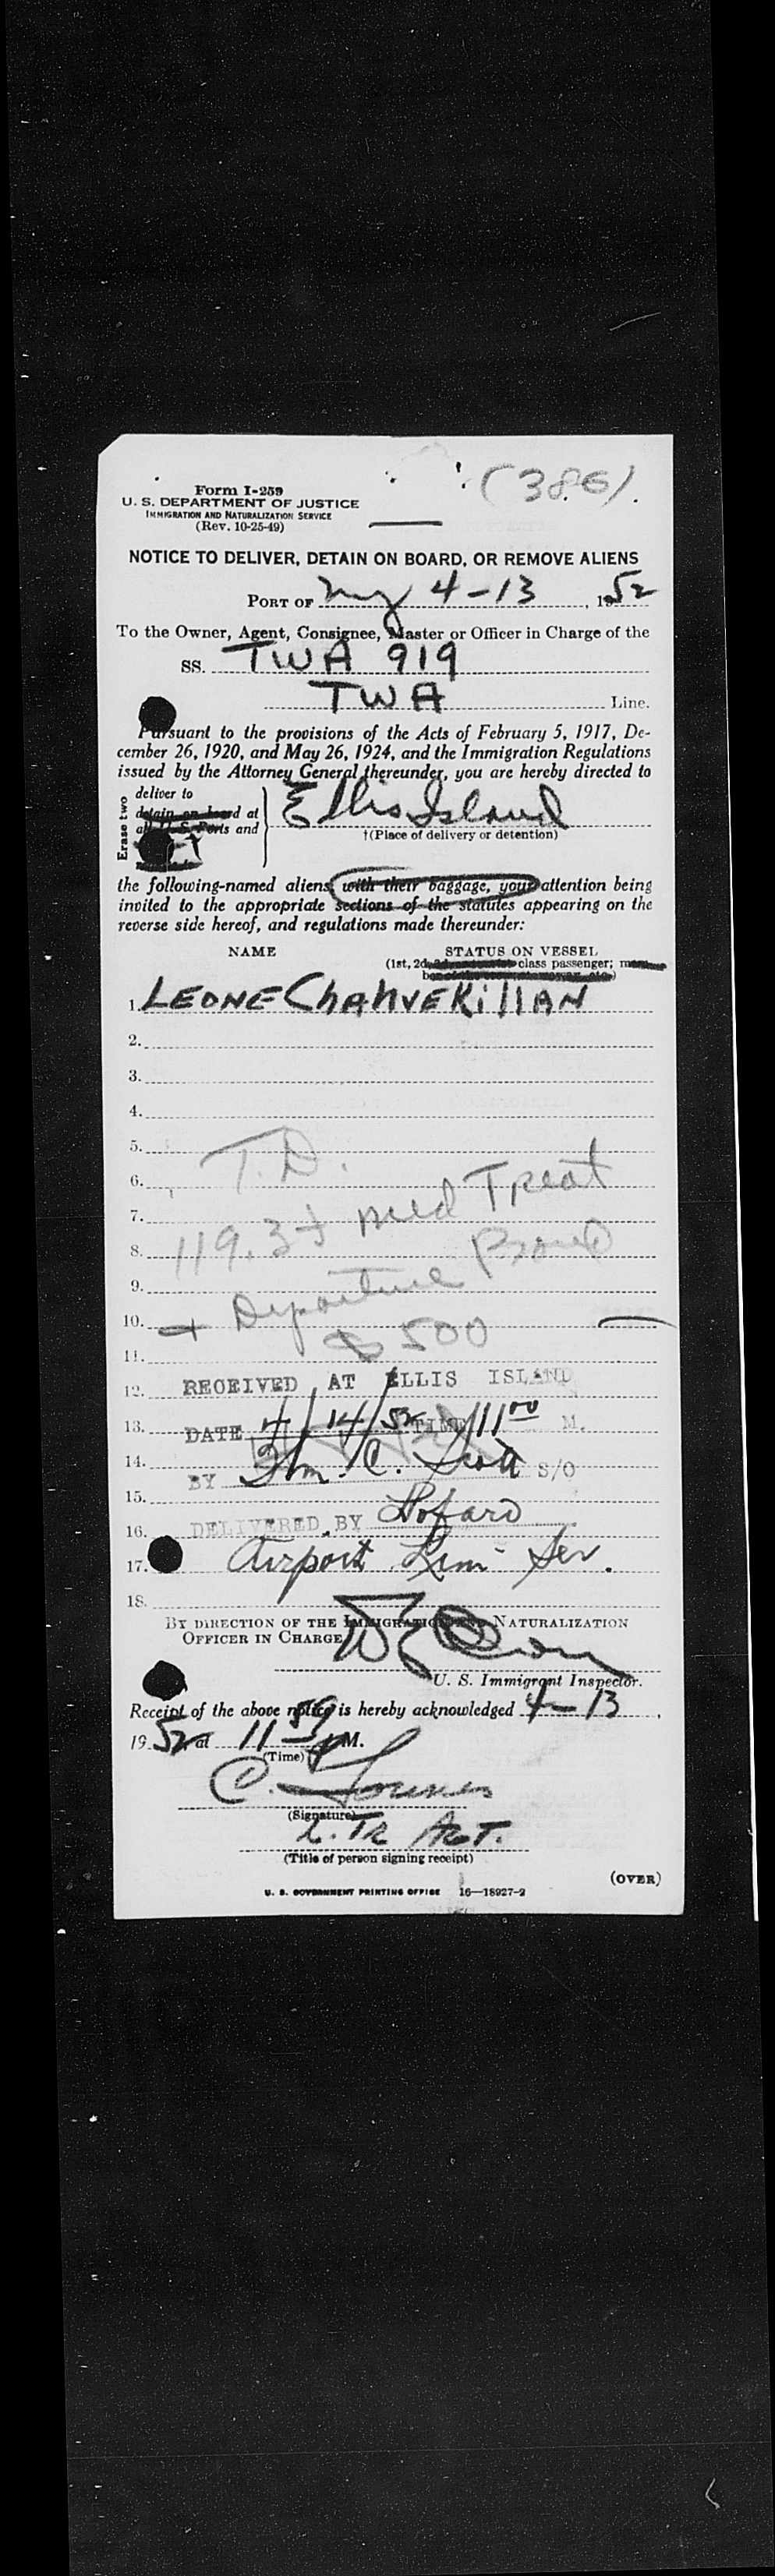 (386)
Form I-259
U. S. DEPARTMENT OF JUSTICE
IMMIGRATION AND NATURALIZATION SERVICE
(Rev. 10-25-49)
NOTICE TO DELIVER, DETAIN ON BOARD, OR REMOVE ALIENS
PORT OF NY 4-13, 1952
To the Owner, Agent, Consignee, Master or Officer in Charge of the
SS. TWA 919
TWA Line.
Pursuant to the provisions of the Acts of February 5, 1917, De-
cember 26, 1920, and May 26, 1924, and the Immigration Regulations
issued by the Attorney General thereunder, you are hereby directed to
Erase two
deliver to
detain on board at
all U. S. Ports and
Ellis Island
†(Place of delivery or detention)
the following-named aliens with their baggage, your attention being
invited to the appropriate sections of the statutes appearing on the
reverse side hereof, and regulations made thereunder:
NAME STATUS ON VESSEL
(1st, 2d, class passenger; mem-
1. LEONE ChAhVEKillAN
2.
3.
4.
5. T.D.
6.
7. med Treat
8. 119.3
9. Bond
10. + Departure
11. $500
12. RECEIVED AT ELLIS ISLAND
13. DATE 4/14/52 TIME 1100 M.
14. BY C. Scott S/O
15.
16. DELIVERED BY Lofaro
17. Airport Lim Ser.
18.
BY DIRECTION OF THE IMMIGRATION AND NATURALIZATION
OFFICER IN CHARGE
U. S. Immigrant Inspector.
Receipt of the above notice is hereby acknowledged 4-13,
1952, at 11 59 P M.
(Time)
C.
(Signature)
Agt.
(Title of person signing receipt)
(OVER)
U. S. GOVERNMENT PRINTING OFFICE 16—18927-2